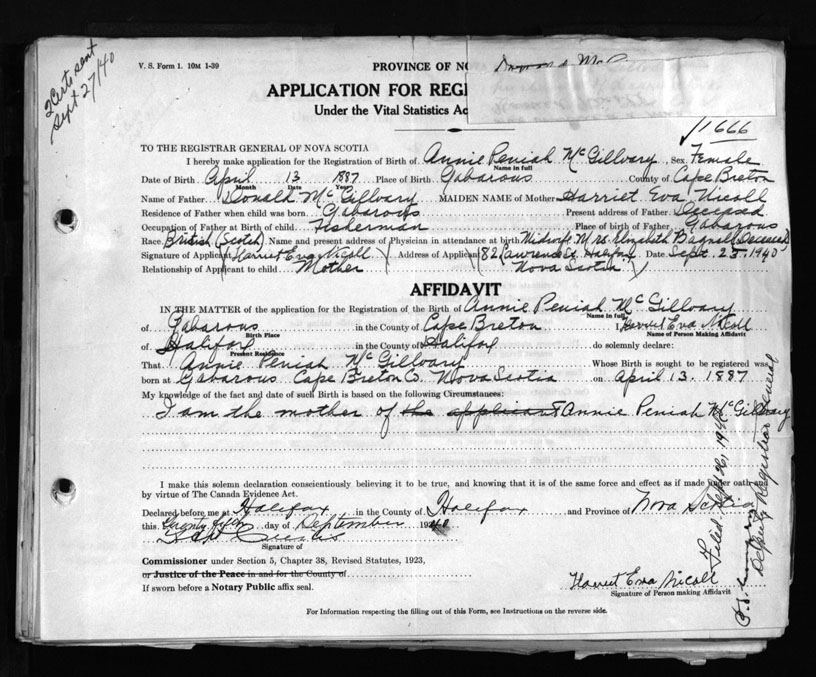 2 Certs sent
Sept 27/40
V. S. Form 1. 10M 1-39
PROVINCE OF NO
APPLICATION FOR REG
Under the Vital Statistics Ac
1666
TO THE REGISTRAR GENERAL OF NOVA SCOTIA
I hereby make application for the Registration of Birth of Annie Peniah McGillvary Sex Female
Name in full
Date of Birth April 13 1887 Place of Birth Gabarous County of Cape Breton
Month Date Year
Name of Father Donald McGillvary MAIDEN NAME of Mother Harriet Eva Nicoll
Residence of Father when child was born Gabarous Present address of Father Deceased
Occupation of Father at Birth of child Fisherman Place of birth of Father Gabarous
Race British (Scotch) Name and present address of Physician in attendance at birth Midwife Mrs. Elizabeth Bagnell Deceased
Signature of Applicant Harriet Eva Nicoll Address of Applicant 82 Lawrence St. Halifax Date Sept. 25 1940
Relationship of Applicant to child Mother Nova Scotia
AFFIDAVIT
IN THE MATTER of the application for the Registration of the Birth of Annie Peniah McGillvary
Name in full
of Gabarous in the County of Cape Breton I, Harriet Eva Nicoll
Birth Place Name of Person Making Affidavit
of Halifax in the County of Halifax do solemnly declare:
Present Residence
That Annie Peniah McGillvary Whose Birth is sought to be registered was
born at Gabarous Cape Breton Co. Nova Scotia on April 13. 1887
My knowledge of the fact and date of such Birth is based on the following Circumstances:
I am the mother of the applicant Annie Peniah McGillvary
I make this solemn declaration conscientiously believing it to be true, and knowing that it is of the same force and effect as if made under oath and
by virtue of The Canada Evidence Act.
Declared before me at Halifax in the County of Halifax and Province of Nova Scotia
this twenty fifth day of September 1940
Signature of
Commissioner under Section 5, Chapter 38, Revised Statutes, 1923,
or Justice of the Peace in and for the County of
If sworn before a Notary Public affix seal.
Harriet Eva Nicoll
Signature of Person making Affidavit
For Information respecting the filling out of this Form, see Instructions on the reverse side.
Filed Sept 26, 1940
Deputy Registrar General